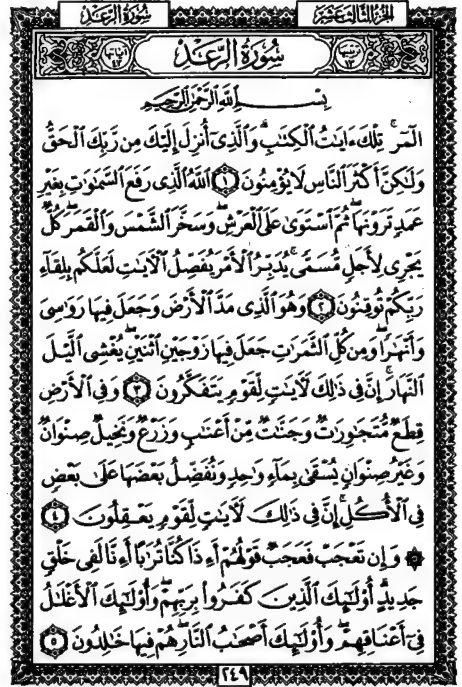 سُورَةُ الرَّعْدِ
الجُزْءُ الثَّالِثَ عَشَرَ
سُورَةُ الرَّعْدِ
بِسْمِ اللَّهِ الرَّحْمَٰنِ الرَّحِيمِ
الٓمٓر ۚ تِلْكَ ءَايَٰتُ ٱلْكِتَٰبِ ۗ وَٱلَّذِىٓ أُنزِلَ إِلَيْكَ مِن رَّبِّكَ ٱلْحَقُّ
وَلَٰكِنَّ أَكْثَرَ ٱلنَّاسِ لَا يُؤْمِنُونَ ١ ٱللَّهُ ٱلَّذِى رَفَعَ ٱلسَّمَٰوَٰتِ بِغَيْرِ
عَمَدٍ تَرَوْنَهَا ۖ ثُمَّ ٱسْتَوَىٰ عَلَى ٱلْعَرْشِ ۖ وَسَخَّرَ ٱلشَّمْسَ وَٱلْقَمَرَ ۖ كُلٌّ
يَجْرِى لِأَجَلٍ مُّسَمًّى ۚ يُدَبِّرُ ٱلْأَمْرَ يُفَصِّلُ ٱلْءَايَٰتِ لَعَلَّكُم بِلِقَآءِ
رَبِّكُمْ تُوقِنُونَ ٢ وَهُوَ ٱلَّذِى مَدَّ ٱلْأَرْضَ وَجَعَلَ فِيهَا رَوَٰسِىَ
وَأَنْهَٰرًا ۖ وَمِن كُلِّ ٱلثَّمَرَٰتِ جَعَلَ فِيهَا زَوْجَيْنِ ٱثْنَيْنِ ۖ يُغْشِى ٱلَّيْلَ
ٱلنَّهَارَ ۚ إِنَّ فِى ذَٰلِكَ لَءَايَٰتٍ لِّقَوْمٍ يَتَفَكَّرُونَ ٣ وَفِى ٱلْأَرْضِ
قِطَعٌ مُّتَجَٰوِرَٰتٌ وَجَنَّٰتٌ مِّنْ أَعْنَٰبٍ وَزَرْعٌ وَنَخِيلٌ صِنْوَانٌ
وَغَيْرُ صِنْوَانٍ يُسْقَىٰ بِمَآءٍ وَٰحِدٍ وَنُفَضِّلُ بَعْضَهَا عَلَىٰ بَعْضٍ
فِى ٱلْأُكُلِ ۚ إِنَّ فِى ذَٰلِكَ لَءَايَٰتٍ لِّقَوْمٍ يَعْقِلُونَ ٤
۞ وَإِن تَعْجَبْ فَعَجَبٌ قَوْلُهُمْ أَءِذَا كُنَّا تُرَٰبًا أَءِنَّا لَفِى خَلْقٍ
جَدِيدٍ ۗ أُو۟لَٰٓئِكَ ٱلَّذِينَ كَفَرُوا۟ بِرَبِّهِمْ ۖ وَأُو۟لَٰٓئِكَ ٱلْأَغْلَٰلُ
فِىٓ أَعْنَاقِهِمْ ۖ وَأُو۟لَٰٓئِكَ أَصْحَٰبُ ٱلنَّارِ ۖ هُمْ فِيهَا خَٰلِدُونَ ٥
٢٤٩